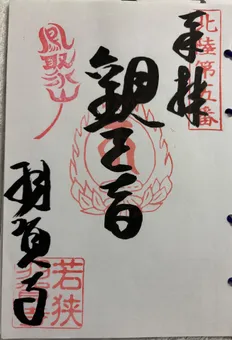 北陸第五番
奉拝
觀世音
鳳聚山
羽賀寺
若狭